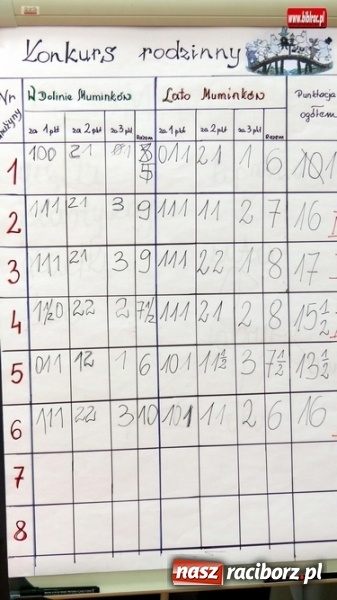 www.biblrac.pl
Konkurs rodzinny
Nr W Dolinie Muminków Lato Muminków Punktacja
drużyny za 1 pkt za 2 pkt za 3 pkt Razem za 1 pkt za 2 pkt za 3 pkt Razem ogółem
1 100 21 5 011 21 1 6
2 111 21 3 9 111 11 2 7 16
3 111 21 3 9 111 22 1 8 17
4 1½0 22 2 7½ 111 21 2 8 15½
5 011 12 1 6 101 11½ 3 7½ 13½
6 111 22 3 10 101 11 2 6 16
7
8
nasz raciborz.pl